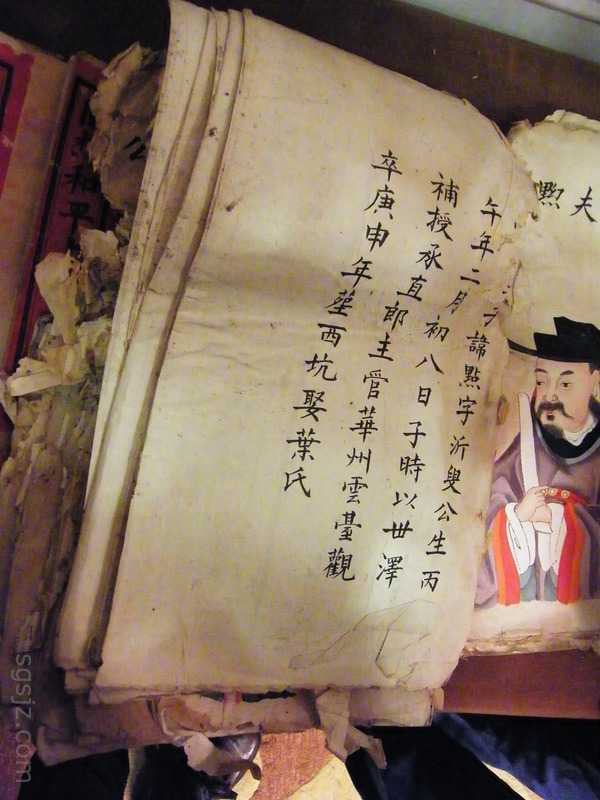 夫
子諱點字沂叟公生丙
午年二月初八日子時以世澤
補授承直郎主管華州雲臺觀
卒庚申年塟西坑娶葉氏
公
和平
sgsjz.com